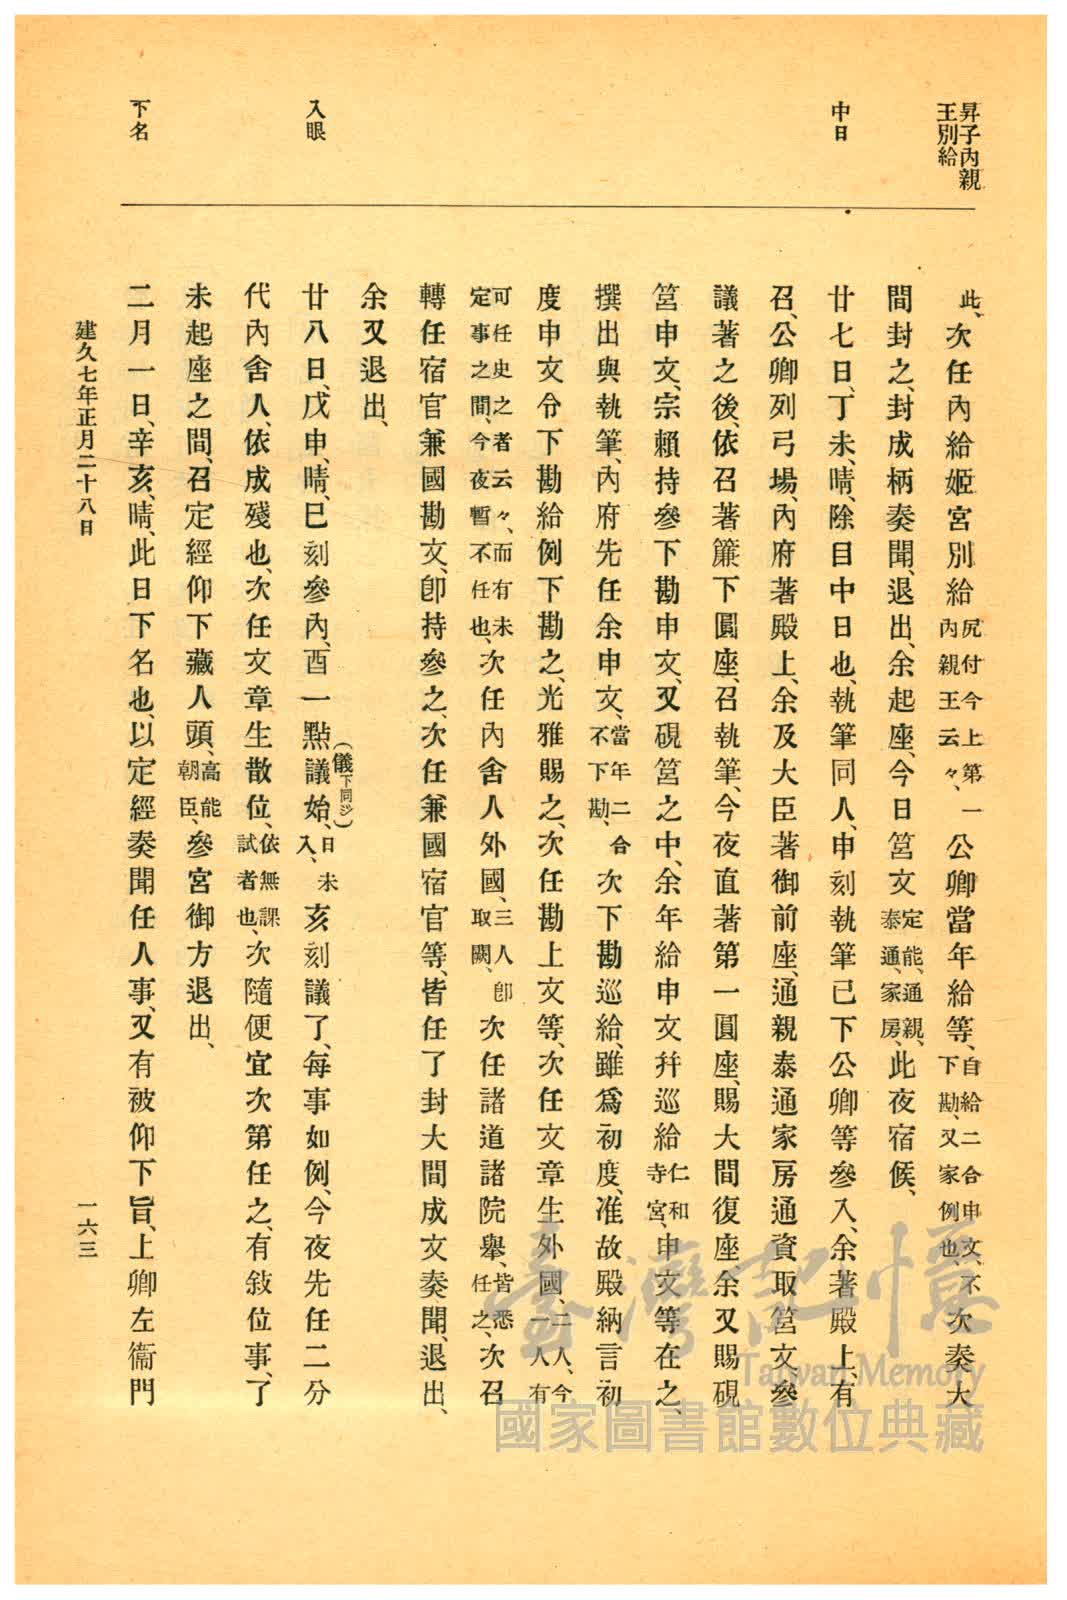 昇子內親
王別給
中日
入眼
下名
此、次任內給姬宮別給尻付今上第一內親王云々、公卿當年給等、自給二合申文、不下勘、又家例也、次奏大
間封之、封成柄奏聞、退出、余起座、今日筥文定能、通親、泰通、家房、此夜宿候、
廿七日、丁未、晴、除目中日也、執筆同人、申刻執筆已下公卿等參入、余著殿上、有
召、公卿列弓場、內府著殿上、余及大臣著御前座、通親泰通家房通資取筥文參
議著之後、依召著簾下圓座、召執筆、今夜直著第一圓座、賜大間復座余又賜硯
筥申文、宗賴持參下勘申文、又硯筥之中、余年給申文幷巡給仁和寺宮、申文等在之、
撰出與執筆、內府先任余申文、當年二合不下勘、次下勘巡給、雖爲初度、准故殿納言初
度申文令下勘給例下勘之、光雅賜之、次任勘上文等、次任文章生外國、二人、今一人有
可任史之者云々、而有未定事之間、今夜暫不任也、次任內舍人外國、三人卽取闕、次任諸道諸院舉、皆悉任之、次召
轉任宿官兼國勘文、卽持參之、次任兼國宿官等、皆任了封大間成文奏聞、退出、
余又退出、
廿八日、戊申、晴、巳刻參內、酉一點議(儀下同ジ)始、日未入、亥刻議了、每事如例、今夜先任二分
代內舍人、依成殘也、次任文章生散位、依無課試者也、次隨便宜次第任之、有敍位事、了
未起座之間、召定經仰下藏人頭、高能朝臣、參宮御方退出、
二月一日、辛亥、晴、此日下名也、以定經奏聞任人事、又有被仰下旨、上卿左衞門
建久七年正月二十八日
一六三
臺灣記憶
Taiwan Memory
國家圖書館數位典藏